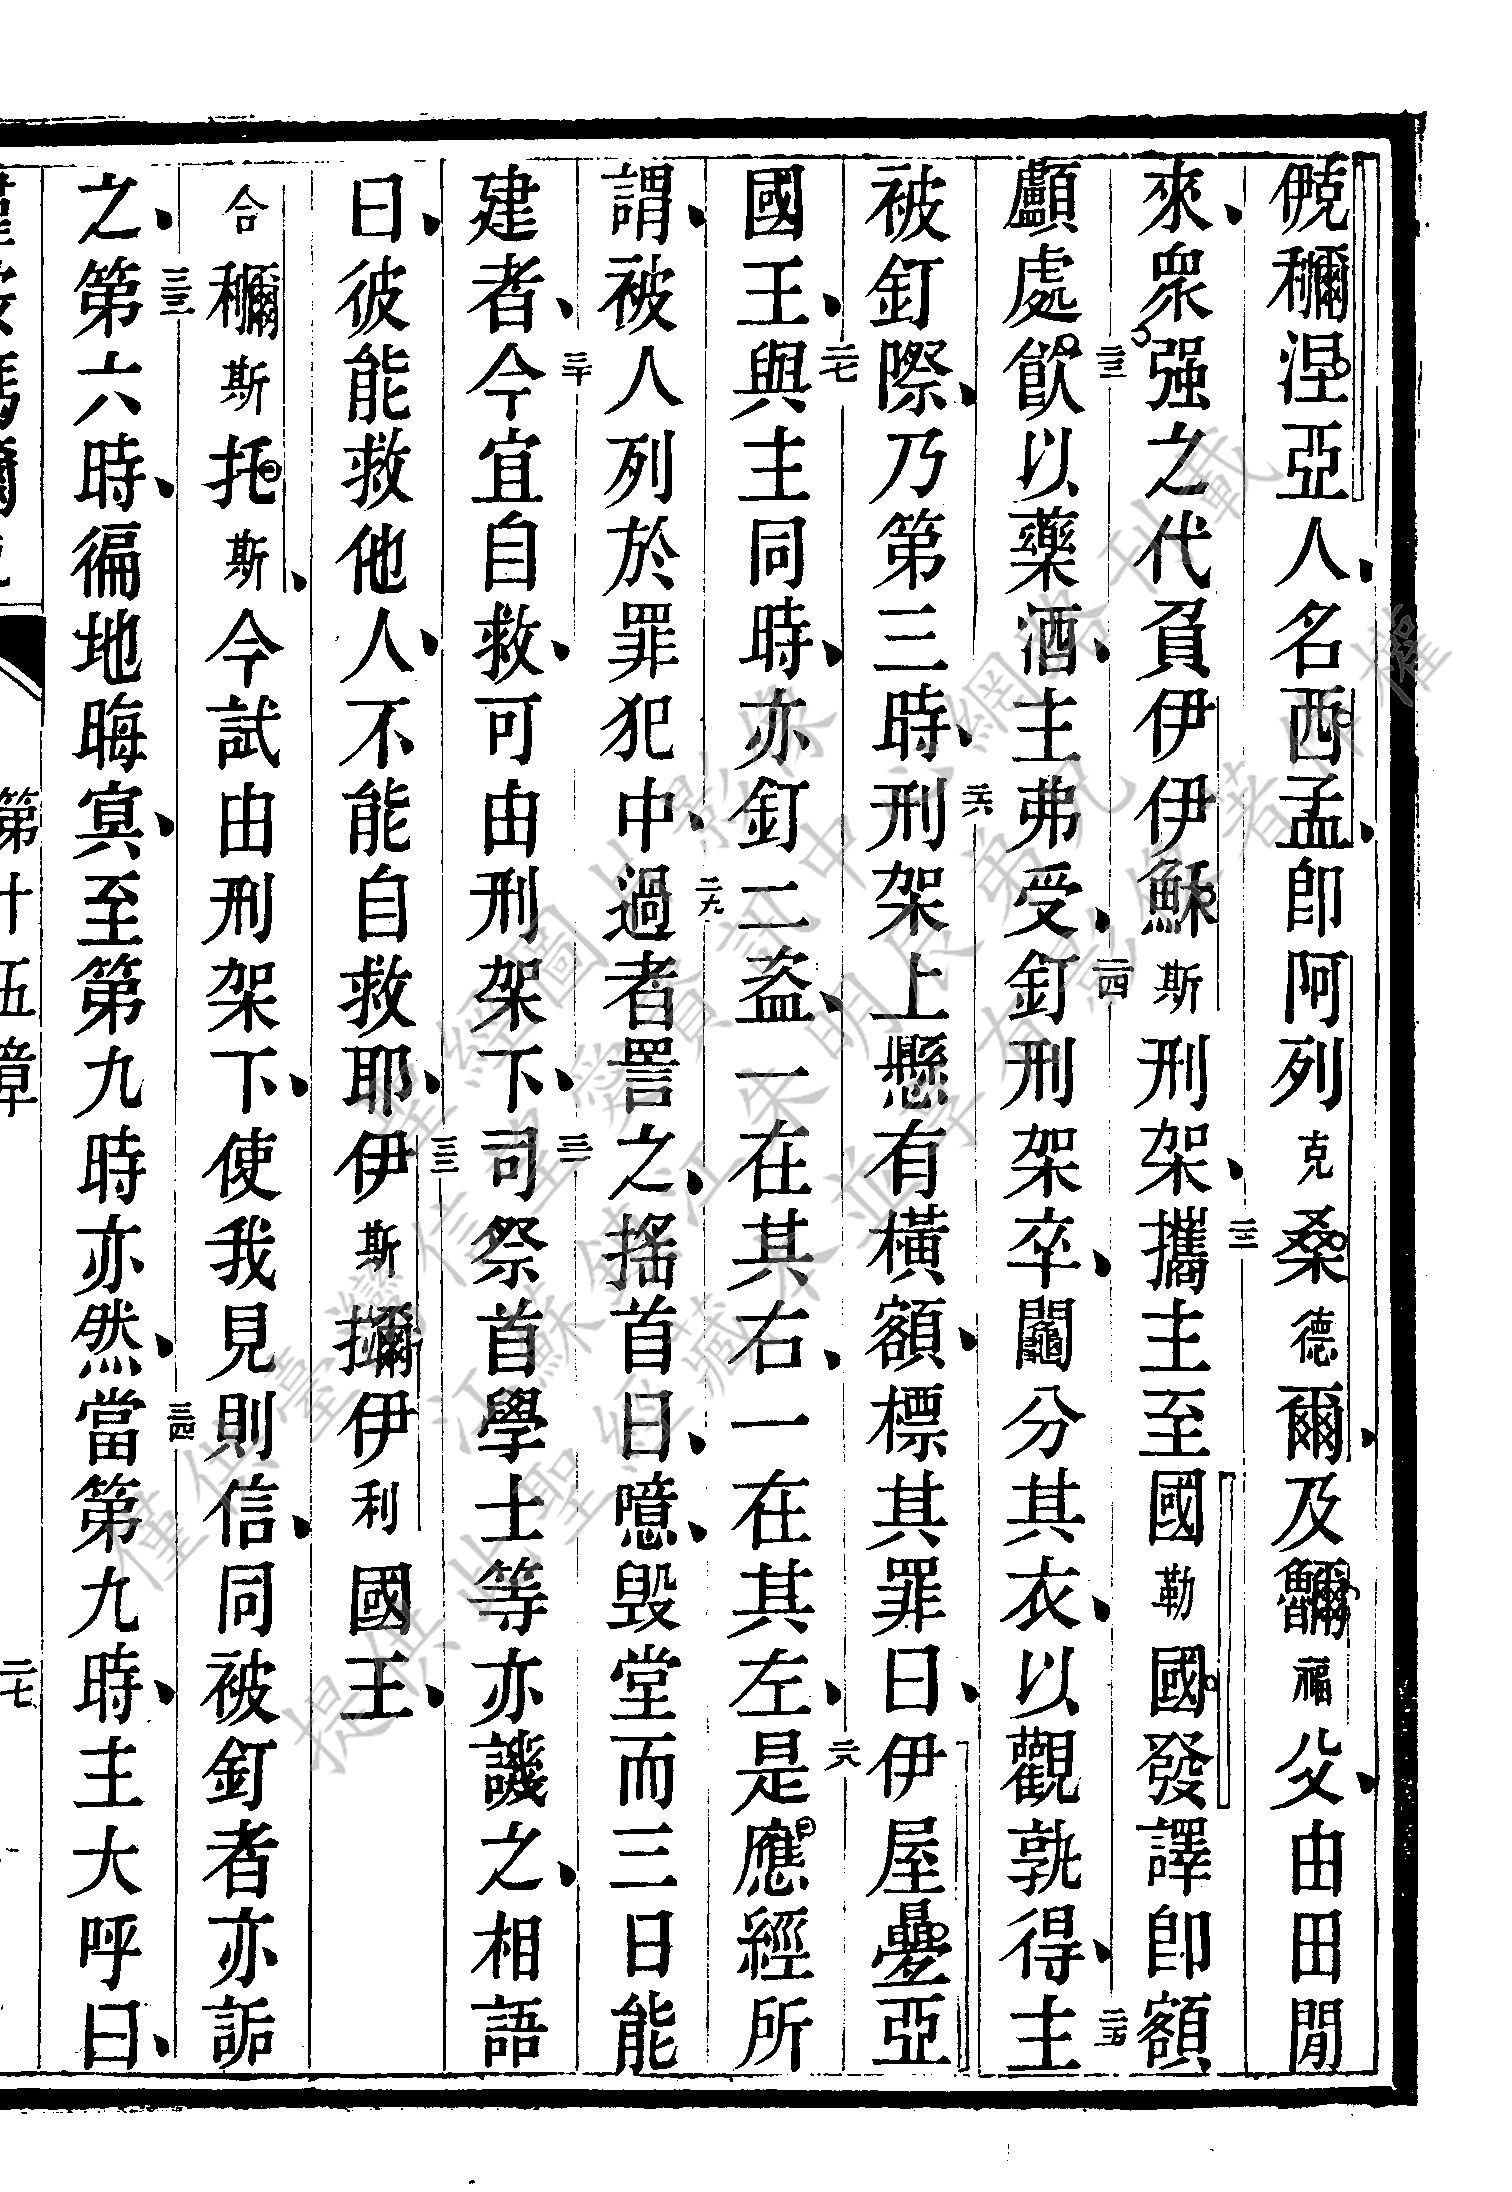 涅亞人、名西孟、即阿列克桑德爾、及福父、由田閒
來、衆强之代負伊伊穌斯刑架、二二攜主至國勒國發譯即額
顱處二三飲以藥酒、主弗受、二四釘刑架卒、鬮分其衣、以觀孰得、二五主
被釘際、乃第三時、二六刑架上懸有橫額、標其罪曰、伊屋疊亞
國王、二七與主同時、亦釘二盜、一在其右、一在其左、二八是應經所
謂、被人列於罪犯中、二九過者詈之、搖首曰、噫、毀堂而三日能
建者、三十今宜自救、可由刑架下、三一司祭首學士等亦譏之、相語
曰、彼能救他人、不能自救耶、三二伊斯伊利國王、
合斯托斯、今試由刑架下、使我見則信、同被釘者亦詬
之、三三第六時、徧地晦冥、至第九時亦然、三四當第九時、主大呼曰、
第十五章 二七